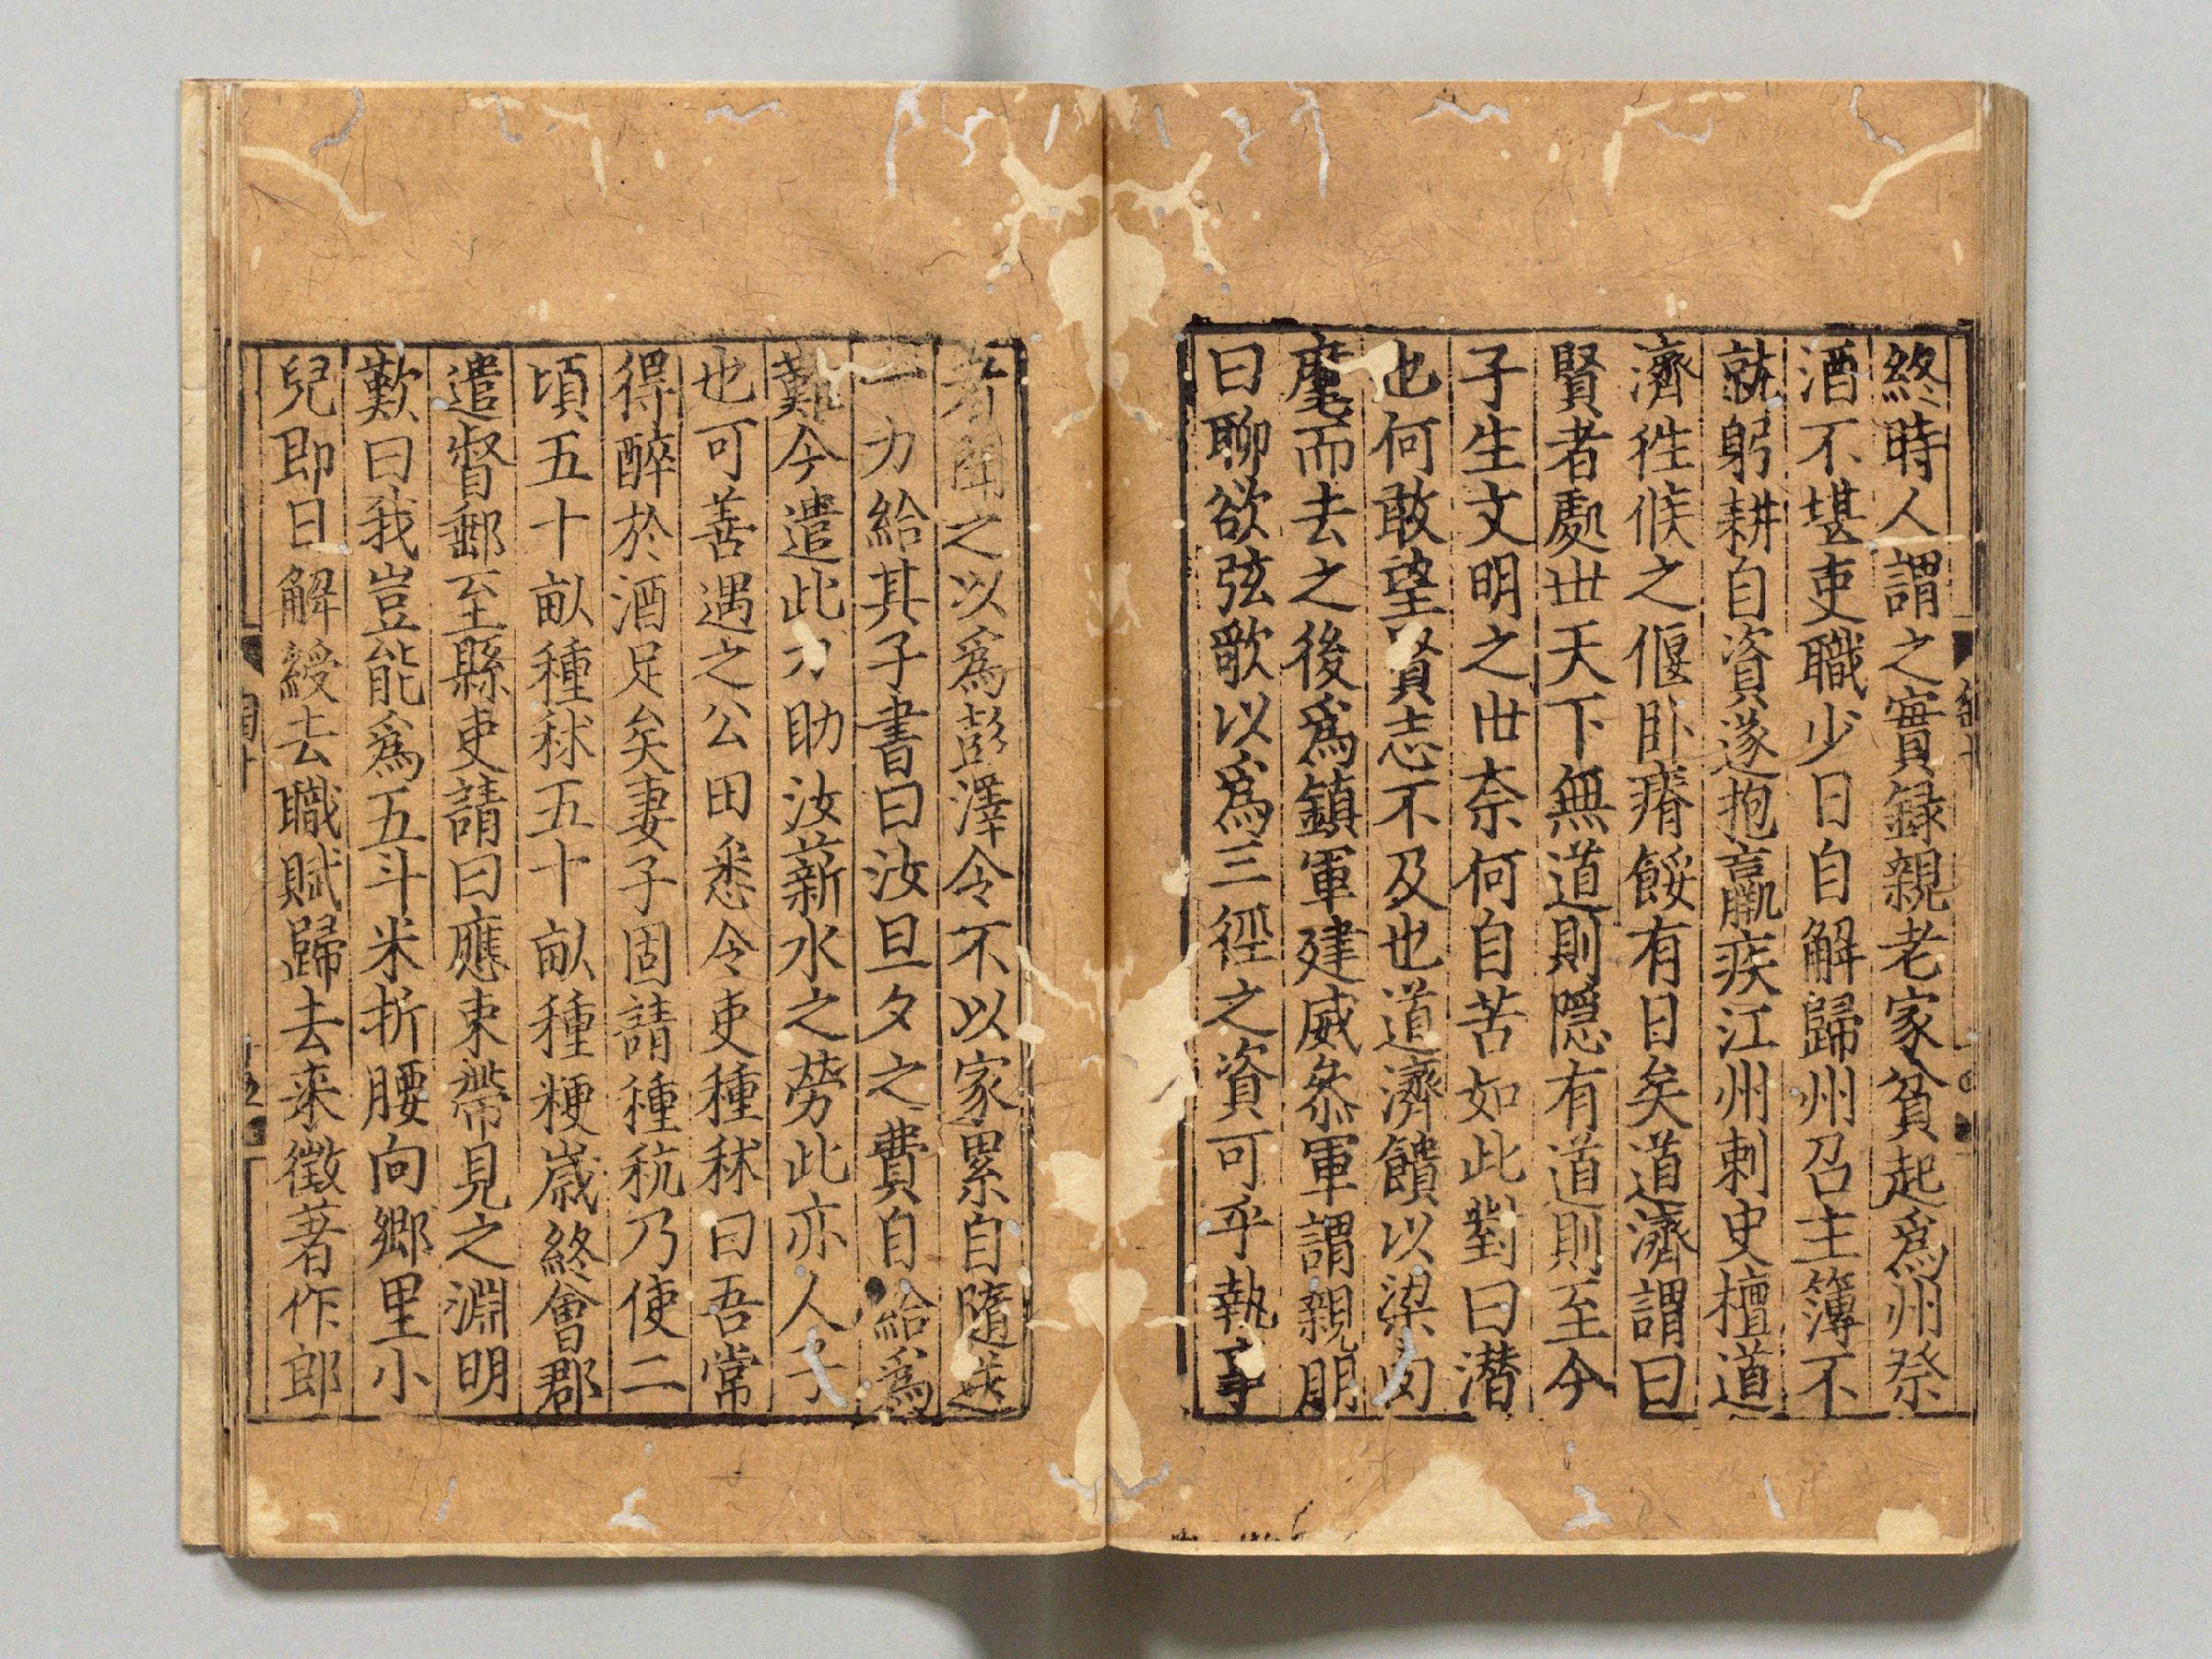 終時人謂之實録親老家貧起爲州祭
酒不堪吏職少日自解歸州召主簿不
就躬耕自資遂抱羸疾江州刺史檀道
濟徃候之偃卧瘠餒有日矣道濟謂曰
賢者處丗天下無道則隱有道則至今
子生文明之世柰何自苦如此對曰潜
也何敢望賢志不及也道濟饋以梁肉
麾而去之後爲鎮軍建威叅軍謂親朋
曰聊欲弦歌以爲三徑之資可乎執事
者聞之以爲彭澤令不以家累自隨送
一力給其子書曰汝旦夕之費自給爲
難今遣此力助汝薪水之勞此亦人子
也可善遇之公田悉令吏種秫曰吾常
得醉於酒足矣妻子固請種秔乃使二
頃五十畝種秫五十畝種粳歲終會郡
遣督郵至縣吏請曰應束帶見之淵明
歎曰我豈能爲五斗米折腰向鄉里小
兒即日解綬去職賦歸去来徵著作郎